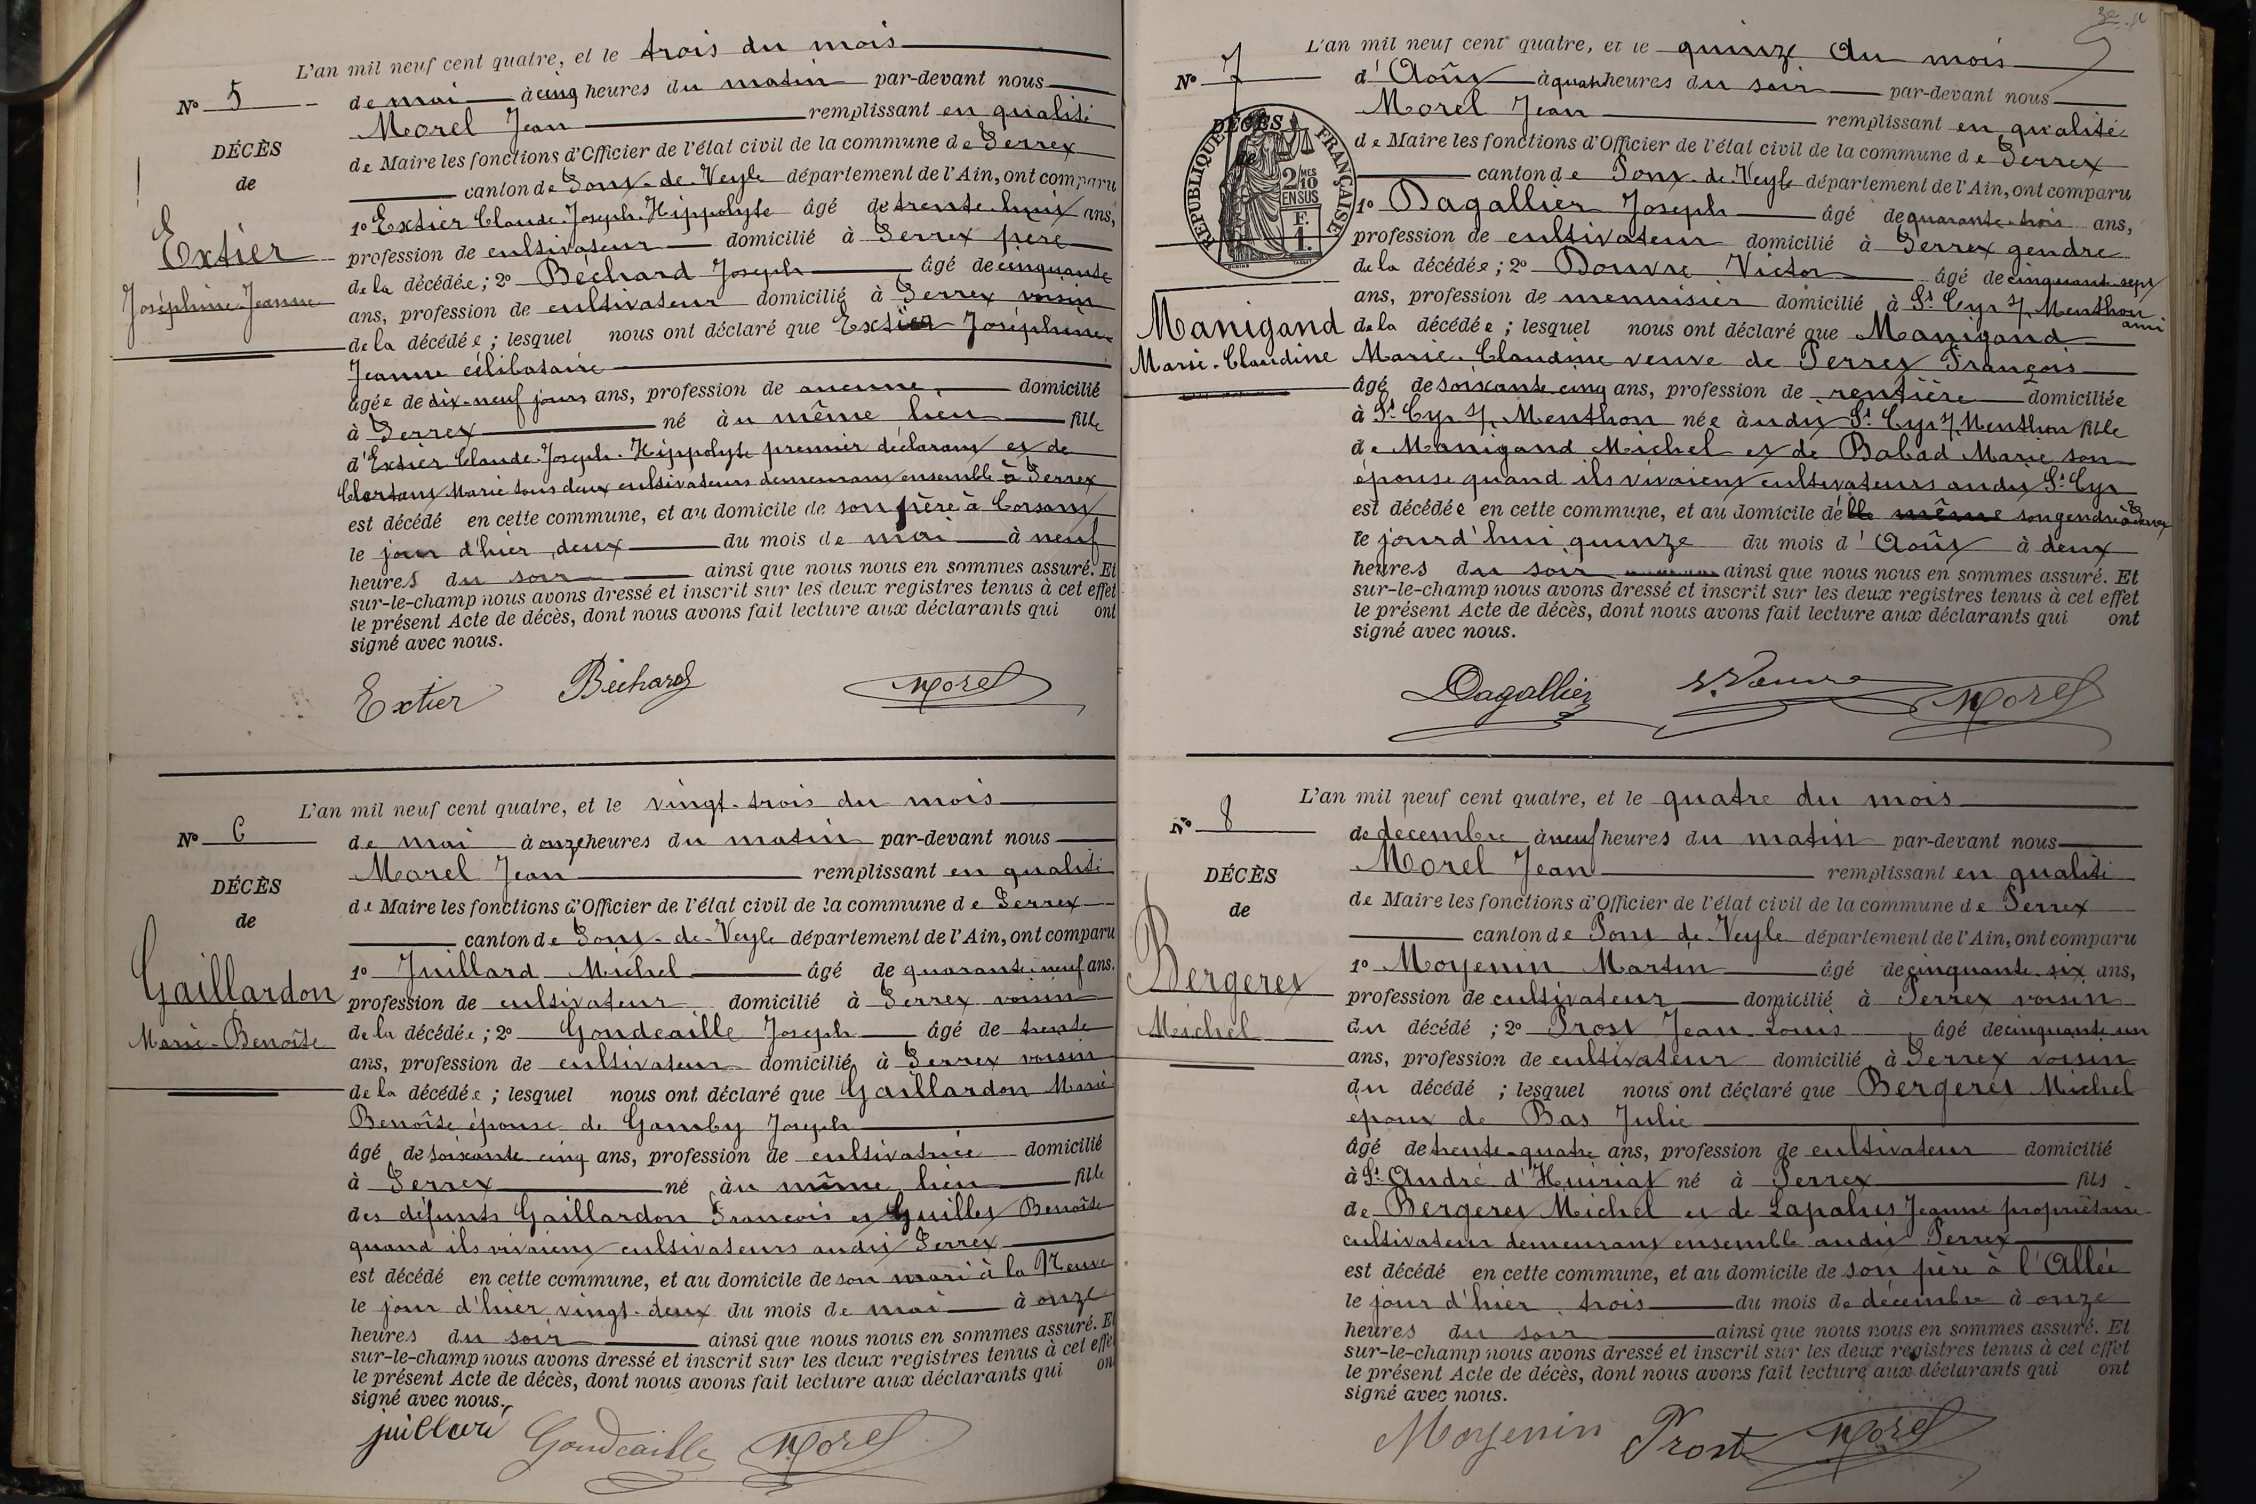 L'an mil neuf cent quatre, et le trois du mois
No 5
de mai à cinq heures du matin par-devant nous
Morel Jean remplissant en qualité
DÉCÈS
de Maire les fonctions d'Officier de l'état civil de la commune de Perrex
de
canton de Pont-de-Veyle département de l'Ain, ont comparu
1o Extier Claude-Joseph-Hippolyte âgé de trente-huit ans,
Extier
profession de cultivateur domicilié à Perrex père
Joséphine-Jeanne
de la décédée; 2o Béchard Joseph âgé de cinquante
ans, profession de cultivateur domicilié à Perrex voisin
de la décédée; lesquel nous ont déclaré que Extier Joséphine
Jeanne célibataire
âgée de dix-neuf jours ans, profession de aucune domicilié
à Perrex né à u même lieu fille
d'Extier Claude-Joseph-Hippolyte premier déclarant et de
Marie tous deux cultivateurs demeurant ensemble à Perrex
est décédé en cette commune, et au domicile de son père à Corsant
le jour d'hier deux du mois de mai à neuf
heures du soir ainsi que nous nous en sommes assuré. Et
sur-le-champ nous avons dressé et inscrit sur les deux registres tenus à cet effet
le présent Acte de décès, dont nous avons fait lecture aux déclarants qui ont
signé avec nous.
Extier Béchard Morel
L'an mil neuf cent quatre, et le vingt-trois du mois
No 6
de mai à onze heures du matin par-devant nous
Morel Jean remplissant en qualité
DÉCÈS
de Maire les fonctions d'Officier de l'état civil de la commune de Perrex
de
canton de Pont-de-Veyle département de l'Ain, ont comparu
1o Juillard Michel âgé de quarante-neuf ans.
Gaillardon
profession de cultivateur domicilié à Perrex voisin
Marie-Benoîte
de la décédée; 2o Gondcaille Joseph âgé de trente
ans, profession de cultivateur domicilié à Perrex voisin
de la décédée; lesquel nous ont déclaré que Gaillardon Marie
Benoîte épouse de Gamby Joseph
âgé de soixante cinq ans, profession de cultivatrice domicilié
à Perrex né à u même lieu fille
des défunts Gaillardon François et Guillet Benoîte
quand ils vivaient cultivateurs audit Perrex
est décédé en cette commune, et au domicile de son mari à la
le jour d'hier vingt-deux du mois de mai à onze
heures du soir ainsi que nous nous en sommes assuré. Et
sur-le-champ nous avons dressé et inscrit sur les deux registres tenus à cet effet
le présent Acte de décès, dont nous avons fait lecture aux déclarants qui ont
signé avec nous.
juillard Gondcaille Morel
L'an mil neuf cent quatre, et le quinze du mois
No 7
d'Août à quatre heures du soir par-devant nous
Morel Jean remplissant en qualité
DÉCÈS
de
RÉPUBLIQUE FRANÇAISE
2/10 MES
EN SUS
F.
1.
de Maire les fonctions d'Officier de l'état civil de la commune de Perrex
canton de Pont-de-Veyle département de l'Ain, ont comparu
1o Dagallier Joseph âgé de quarante-trois ans,
profession de cultivateur domicilié à Perrex gendre
de la décédée; 2o Douvre Victor âgé de cinquant-sept
ans, profession de menuisier domicilié à St Cyr s/ Menthon
ami
Manigand
de la décédée; lesquel nous ont déclaré que Manigand
Marie-Claudine
Marie-Claudine veuve de Perret François
âgé de soixante cinq ans, profession de rentière domiciliée
à St Cyr s/ Menthon née à udit St Cyr s/ Menthon fille
de Manigand Michel et de Babad Marie son
épouse quand ils vivaient cultivateurs audit St Cyr
est décédée en cette commune, et au domicile de lle même son gendre à Perrex
le jourd'hui quinze du mois d'Août à deux
heures du soir ainsi que nous nous en sommes assuré. Et
sur-le-champ nous avons dressé et inscrit sur les deux registres tenus à cet effet
le présent Acte de décès, dont nous avons fait lecture aux déclarants qui ont
signé avec nous.
Dagallier Morel
L'an mil neuf cent quatre, et le quatre du mois
No 8
de décembre à neuf heures du matin par-devant nous
Morel Jean remplissant en qualité
DÉCÈS
de Maire les fonctions d'Officier de l'état civil de la commune de Perrex
de
canton de Pont de Veyle département de l'Ain, ont comparu
1o Moyenin Martin âgé de cinquante-six ans,
Bergeret
profession de cultivateur domicilié à Perrex voisin
Michel
du décédé; 2o Prost Jean-Louis âgé de cinquante un
ans, profession de cultivateur domicilié à Perrex voisin
du décédé; lesquel nous ont déclaré que Bergeret Michel
époux de Bas Julie
âgé de trente-quatre ans, profession de cultivateur domicilié
à St André d'Huiriat né à Perrex fils
de Bergeret Michel et de Lapalus Jeanne propriétaire
cultivateur demeurant ensemble audit Perrex
est décédé en cette commune, et au domicile de son père à l'Allée
le jour d'hier trois du mois de décembre à onze
heures du soir ainsi que nous nous en sommes assuré. Et
sur-le-champ nous avons dressé et inscrit sur les deux registres tenus à cet effet
le présent Acte de décès, dont nous avons fait lecture aux déclarants qui ont
signé avec nous.
Moyenin Prost Morel